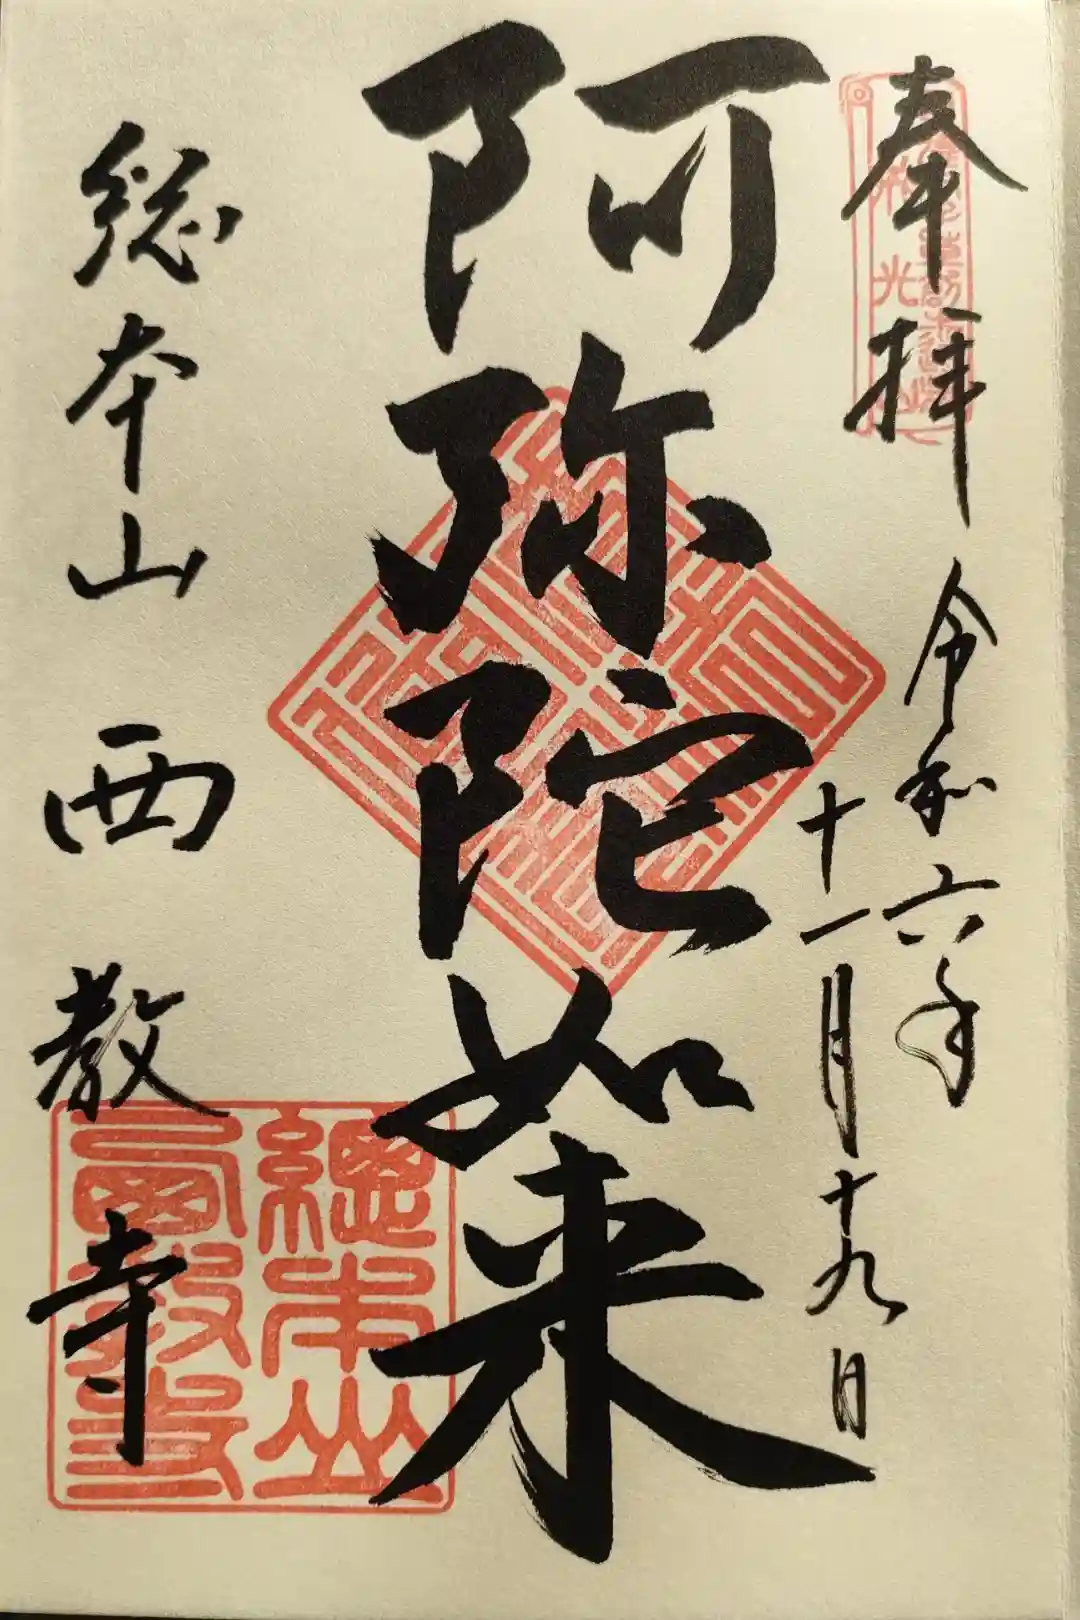 奉拝
令和六年
十一月十九日
阿弥陀如来
総本山 西教寺
總本山
西教寺